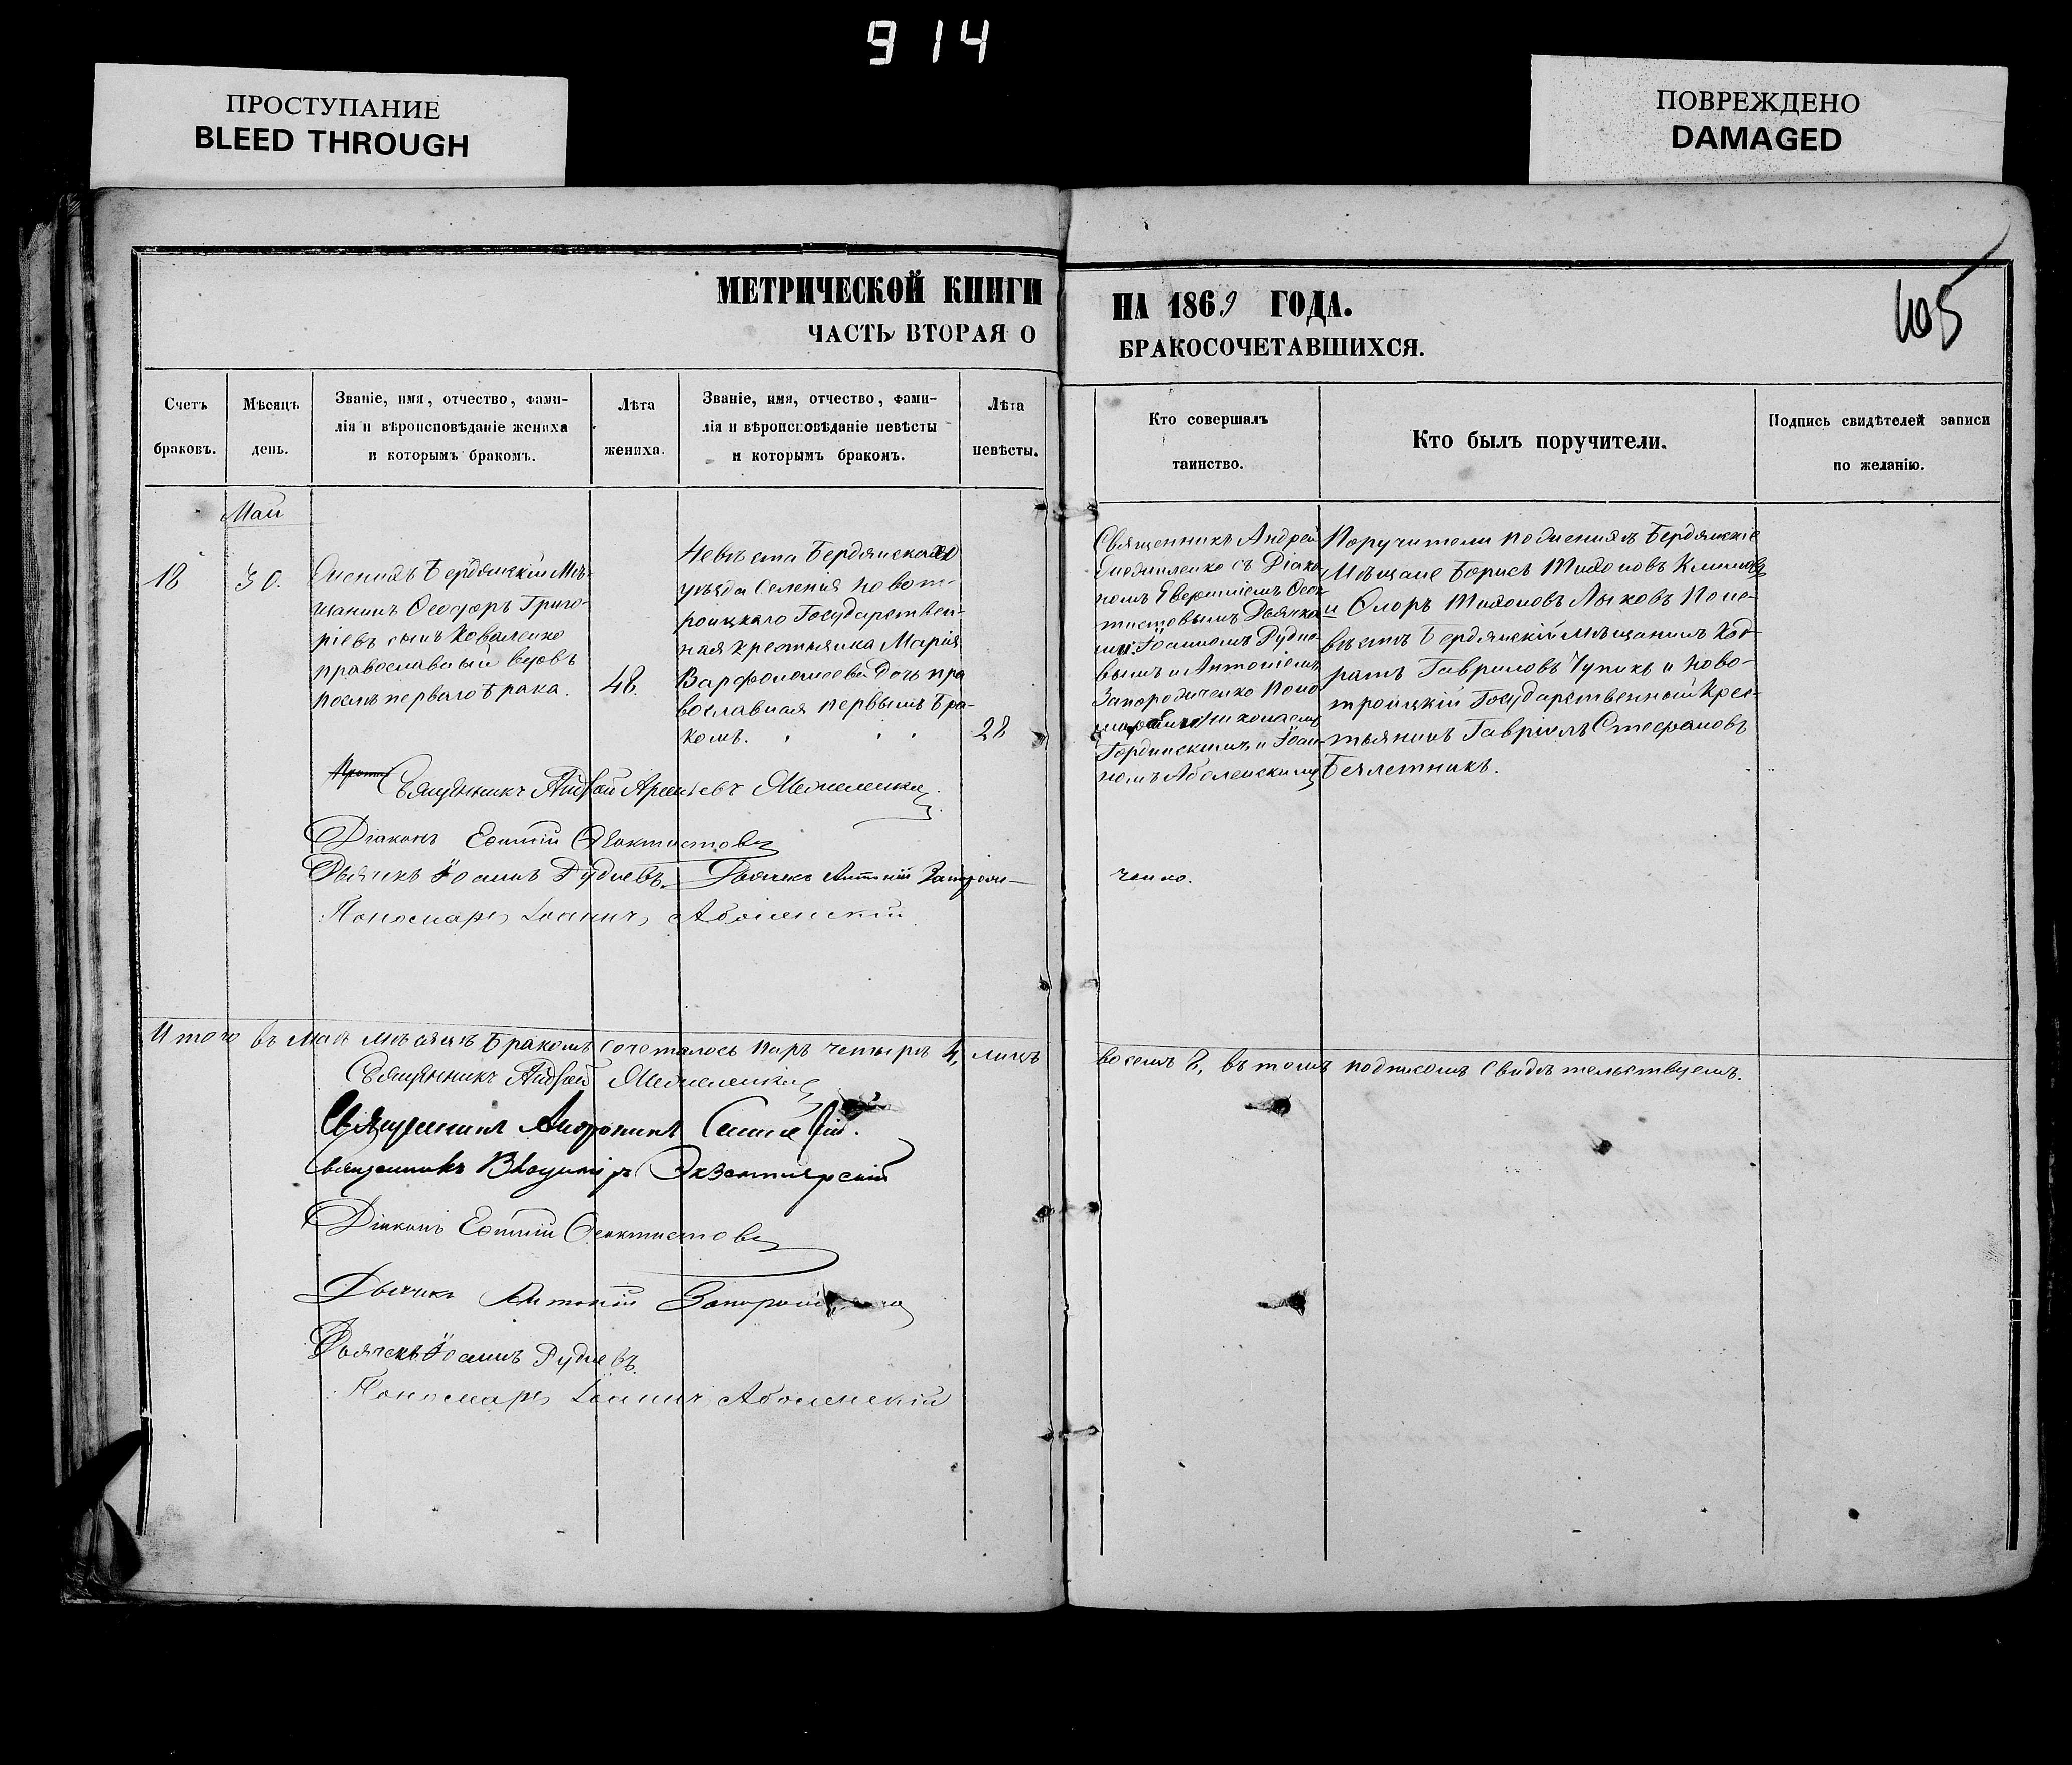 914
ПРОСТУПАНИЕ
BLEED THROUGH
ПОВРЕЖДЕНО
DAMAGED
МЕТРИЧЕСКОЙ КНИГИ НА 1869 ГОДА.
ЧАСТЬ ВТОРАЯ О БРАКОСОЧЕТАВШИХСЯ.
105
Счетъ
браковъ.
Мѣсяцъ
день.
Званіе, имя, отчество, фами-
лія и вѣроисповѣданіе жениха
и которымъ бракомъ.
Лѣта
жениха.
Званіе, имя, отчество, фами-
лія и вѣроисповѣданіе невѣсты
и которымъ бракомъ.
Лѣта
невѣсты.
Кто совершалъ
таинство.
Кто былъ поручители.
Подпись свидѣтелей записи
по желанію.
Май
18
30.
Женихъ Бердянскій Мѣ-
щанинъ Ѳеодоръ Григо-
ріевъ сынъ Коваленко
православный вдовъ
послѣ перваго брака.
48.
Невѣста Бердянскаго
уѣзда селенія Новот-
роицкаго Государствен-
ная крестьянка Марія
Варфоломеева дочь пра
вославная первымъ бра-
комъ.
28
Священникъ Андрей
съ Діако
номъ
Іоанномъ Рудне-
вымъ и Антоніемъ
Николаемъ
и Іоан-
номъ
Поручители по женихѣ Бердянскіе
Мѣщане Борисъ Тихоновъ
и Тихоновъ Лыковъ По не-
вѣстѣ Бердянскій мѣщанинъ Код-
ратъ Гавриловъ Чупикъ и Ново-
троицкій Государственный Крес-
тьянинъ Гавріилъ Стефановъ
Священникъ Андрей Арсеньевъ
Діаконъ Ефимій Ѳеоктистовъ
Дьячекъ Іоаннъ Рудневъ. Дьячекъ Антоній
ченко.
Пономарь Іоаннъ Аболенскій
Итого въ Маѣ мѣсяцѣ бракомъ сочеталось паръ четыре 4, лицъ восемь 8, въ томъ подписомъ свидѣтельствуемъ.
Священникъ Андрей
Священникъ
Священникъ Владиміръ Экземплярскій
Діаконъ Ефимій Ѳеоктистовъ
Дьячекъ Антоній
Дьячекъ Іоаннъ Рудневъ.
Пономарь Іоаннъ Аболенскій